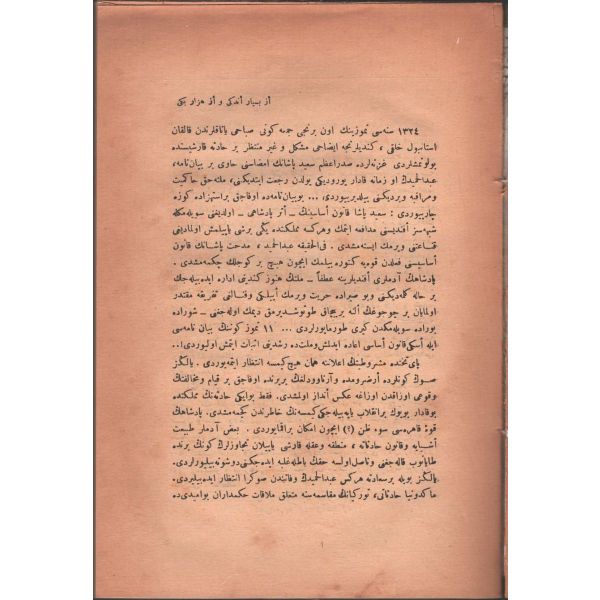 از بسیار اندکی و از هزار یکی
١٣٢٤ سنه‌سی تموزینك اون برنجی جمعه كونی صباحی یاتاقلرندن قالقان
استانبول خلقی ، كندیلرنجه ایضاحی مشكل و غیر منتظر بر حادثه قارشیسنده
بولونمشلردی غزته‌لرده صدراعظم سعید پاشانك امضاسنی حاوی بر بیان‌نامه ،
عبدالحمیدك او زمانه قادار یورودیكی یولدن رجعت ایتدیكنی ، ملته حق حاكمیت
ومراقبه ویردیكنی بیلدیریوردی ... بوبیان‌نامه‌ده اوفاجق بر استهزاده كوزه
چارپیوردی : سعید پاشا قانون اساسینك ـ اثر پادشاهی ـ اولدیغنی سویله‌مكله
شبهه‌سز افندیسنی مدافعه ایتمك وهركسه مملكتده یكی برشی یاپیلمش اولمادیغی
قناعتنی ویرمك ایسته‌مشدی . فی‌الحقیقه عبدالحمید ، مدحت پاشانك قانون
اساسیسنی فعلدن قوه‌یه كتوره بیلمك ایچون هیچ بر كوجلك چكمه‌مشدی .
پادشاهك آدملری افندیلرینه عطفاً ـ ملتك هنوز كندینی اداره ایده‌بیله‌جك
بر حاله كلمه‌دیكنی وبو صیراده حریت ویرمك آییلكی وفنالغی تفریقه مقتدر
اولمایان بر چوجوغك الینه بر بیچاق طوتوشدیرمق دیمك اوله‌جغنی ـ شوراده
بوراده سویله‌مكدن كیری طورمایورلردی ... ١١ تموز كوننك بیان نامه‌سی
ایله اسكی قانون اساسی اعاده ایدلمش وملت‌ده رشدینی اثبات ایتمش اولیوردی!..
پای‌تختده مشروطیتك اعلاننه همان هیچ كیمسه انتظار ایتمه‌یوردی . یالكز
صوك كونلرده ارضرومده و آرناوودلقده بربرنده اوفاجق بر قیام ومخالفتك
وقوعی اوزاقدن اوزاغه عكس انداز اولمشدی . فقط بوایكی حادثه‌نك مملكتده
بوقادار بویوك برانقلاب یاپه‌بیله‌جكی كیمسه‌نك خاطرندن كچمه‌مشدی . پادشاهك
قوهٔ قاهره‌سی سوء ظن (؟) ایچون امكان براقمایوردی . بعض آدملر طبیعت
اشیایه وقانون حادثاته ، منطقه وعقله قارشی یاپیلان تجاوزلرك كونك برنده
طایانوب قاله‌جغنی وناصل اولسه حقك باطله غلبه ایده‌جكنی دوشونه‌بیلیورلردی .
یالكز بویله بر سعادته هركس عبدالحمیدك وفاتندن صوكرا انتظار ایده‌بیلیردی .
ماكدونیا حادثاتی ، توركیانك مقاسمه‌سنه متعلق ملاقات حكمداران بوامیدی‌ده